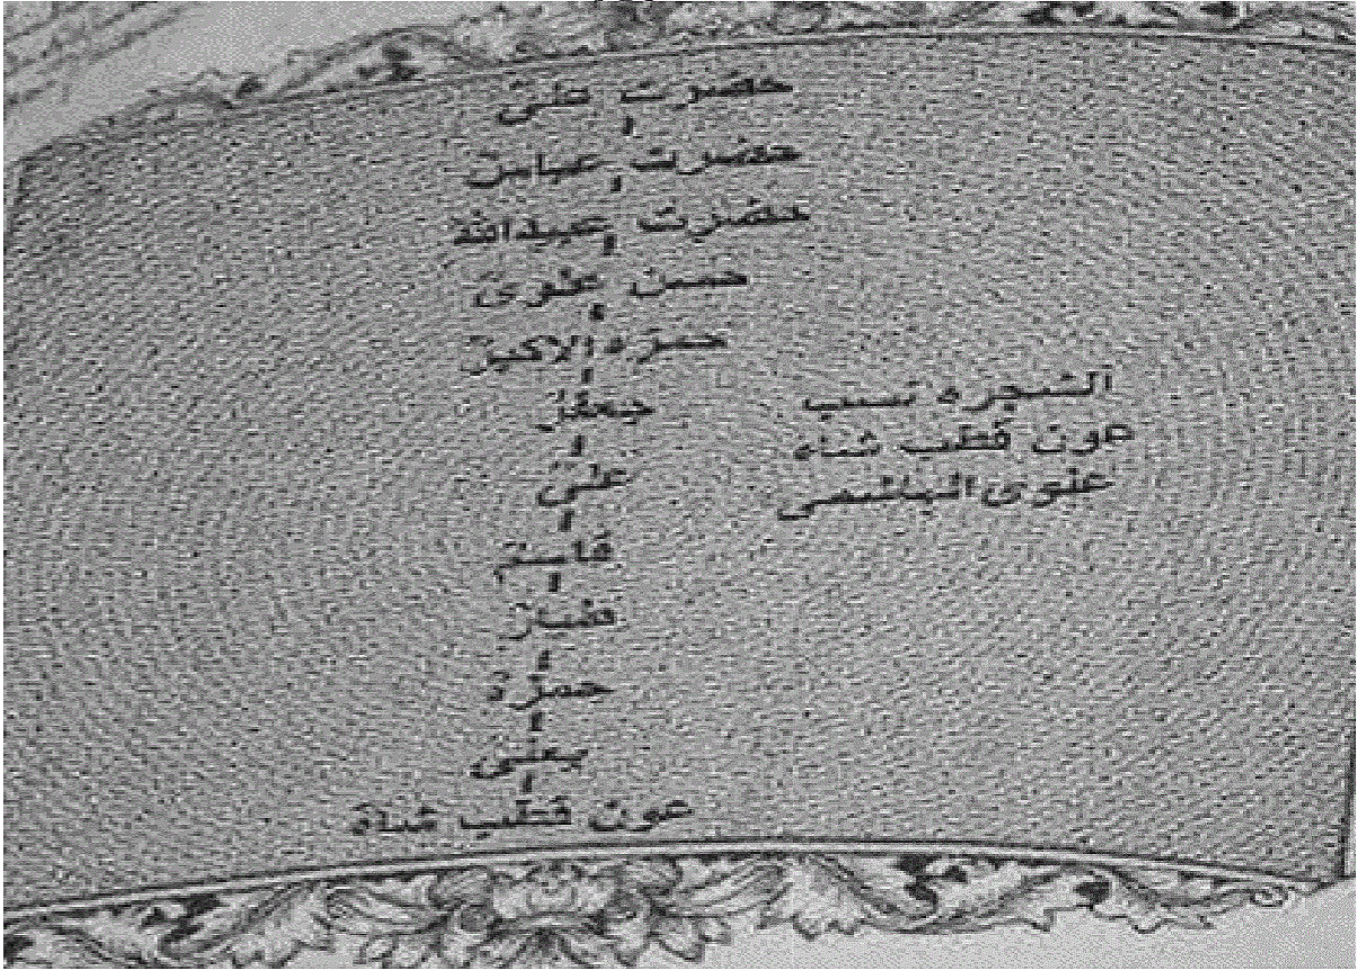 حضرت علی
حضرت عباس
حضرت عبیداللہ
حسن علوی
حمزہ الاکبر
جعفر
علی
قاسم
حمزہ
یعلی
عون قطب شاہ
الشجرہ نسب
عون قطب شاہ
علوی الہاشمی